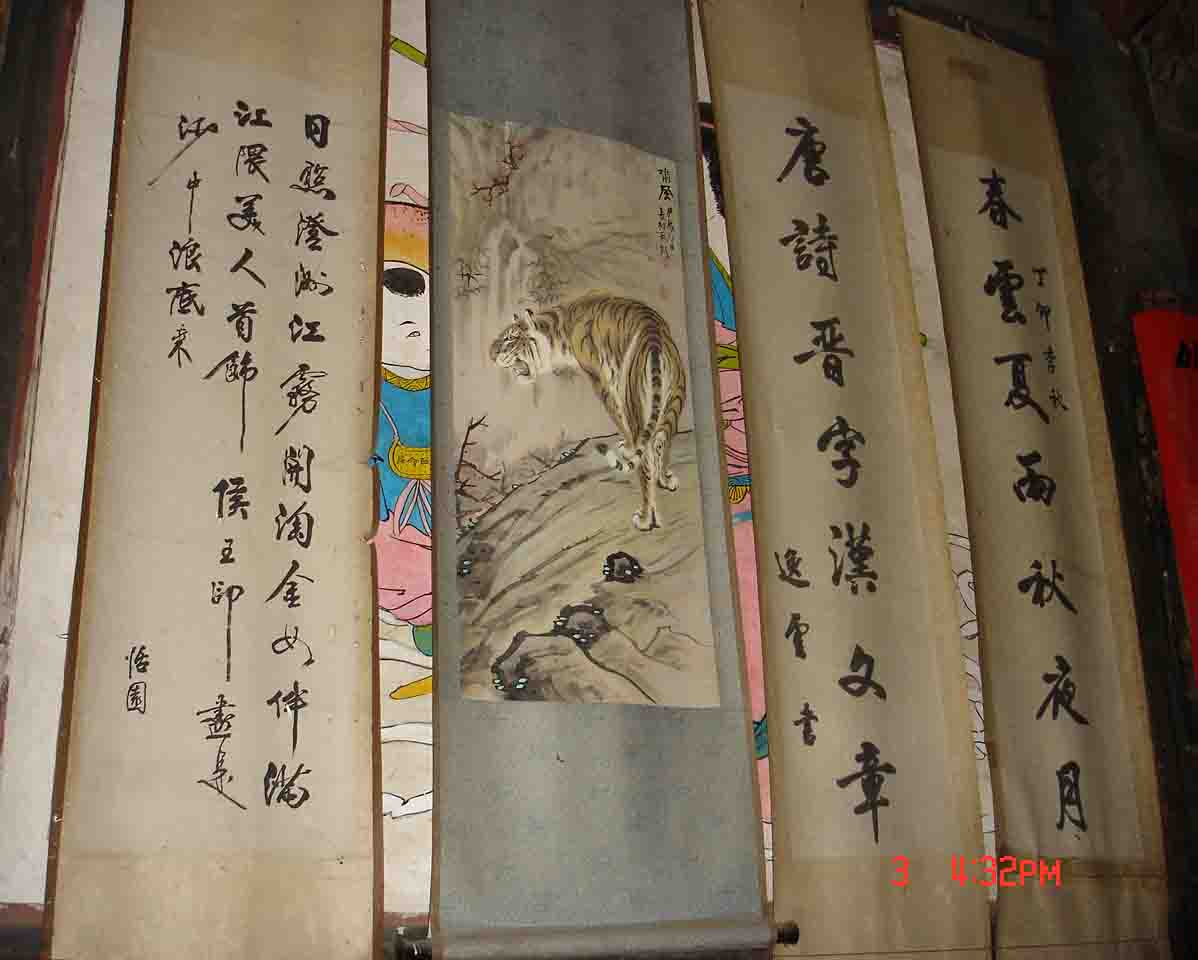 春雲夏雨秋夜月
丁卯季秋
唐詩晋字漢文章
逸雲書
日照澄洲江霧開淘金女伴滿
江隈美人首飾侯王印盡是
沙中浪底来
3 4:32PM